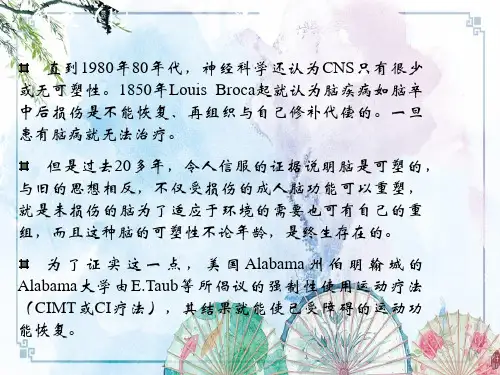 直到1980年80年代，神经科学还认为CNS只有很少
或无可塑性。1850年Louis Broca起就认为脑疾病如脑卒
中后损伤是不能恢复、再组织与自己修补代偿的。一旦
患有脑病就无法治疗。
但是过去20多年，令人信服的证据说明脑是可塑的，
与旧的思想相反，不仅受损伤的成人脑功能可以重塑，
就是未损伤的脑为了适应于环境的需要也可有自己的重
组，而且这种脑的可塑性不论年龄，是终生存在的。
为了证实这一点，美国Alabama州伯明翰城的
Alabama大学由E.Taub等所倡议的强制性使用运动疗法
（CIMT或CI疗法），其结果就能使已受障碍的运动功
能恢复。